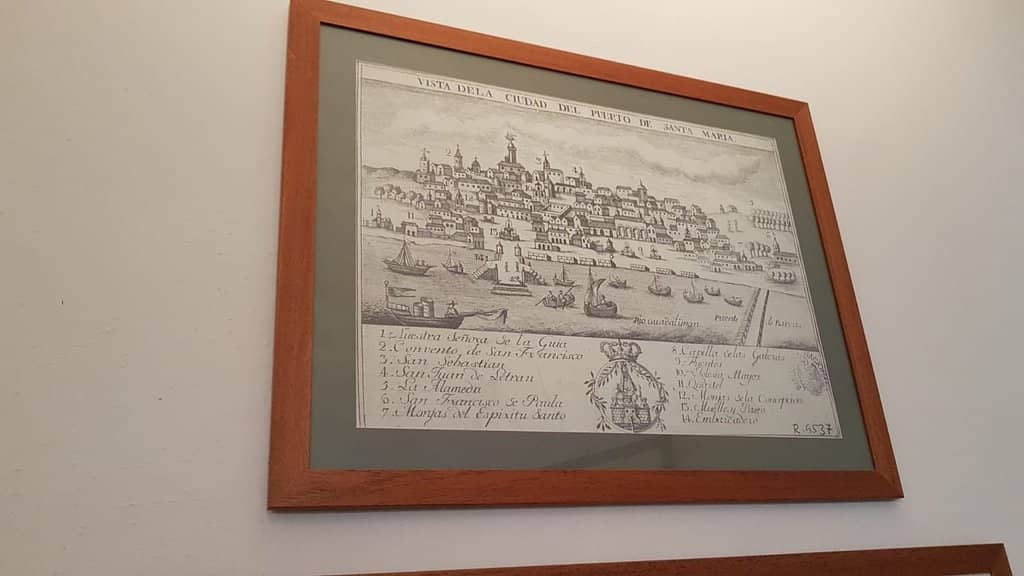 VISTA DE LA CIUDAD DEL PUERTO DE SANTA MARIA
Rio Guadaliman Puente de barcas
1. Nuestra Señora de la Guia
2. Convento de San Francisco
3. San Sebastian
4. San Juan de Letran
5. La Alameda
6. San Francisco de Paula
7. Monjas del Espiritu Santo
8. Capilla de las Galeras
10. Yglesia Mayor
11. Quartel
12. Monjas de la Concepcion
13. Muelle y Paseo
14. Embarcadero
R. 9537